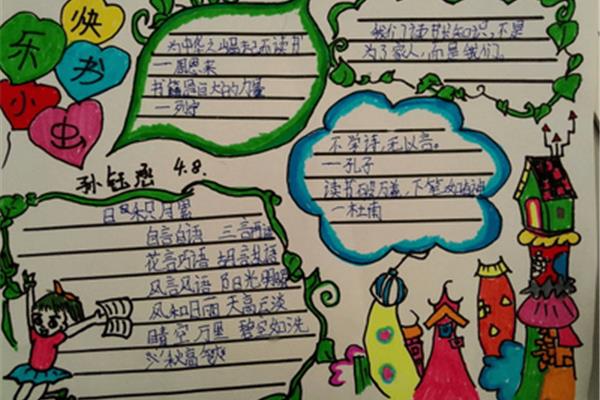 快
乐 书
小 虫
为中华之崛起而读书
—周恩来
书籍是巨大的力量
—列宁
我们读书长知识,不是
为了家人,而是我们。
不学诗,无以言。
—孔子
读书破万卷,下笔如有神
—杜甫
孙钰 4.8.
日积月累
自言自语 三言两语
花言巧语 胡言乱语
风言风语
风和日丽 天高云淡
晴空万里 碧空如洗
秋高气爽